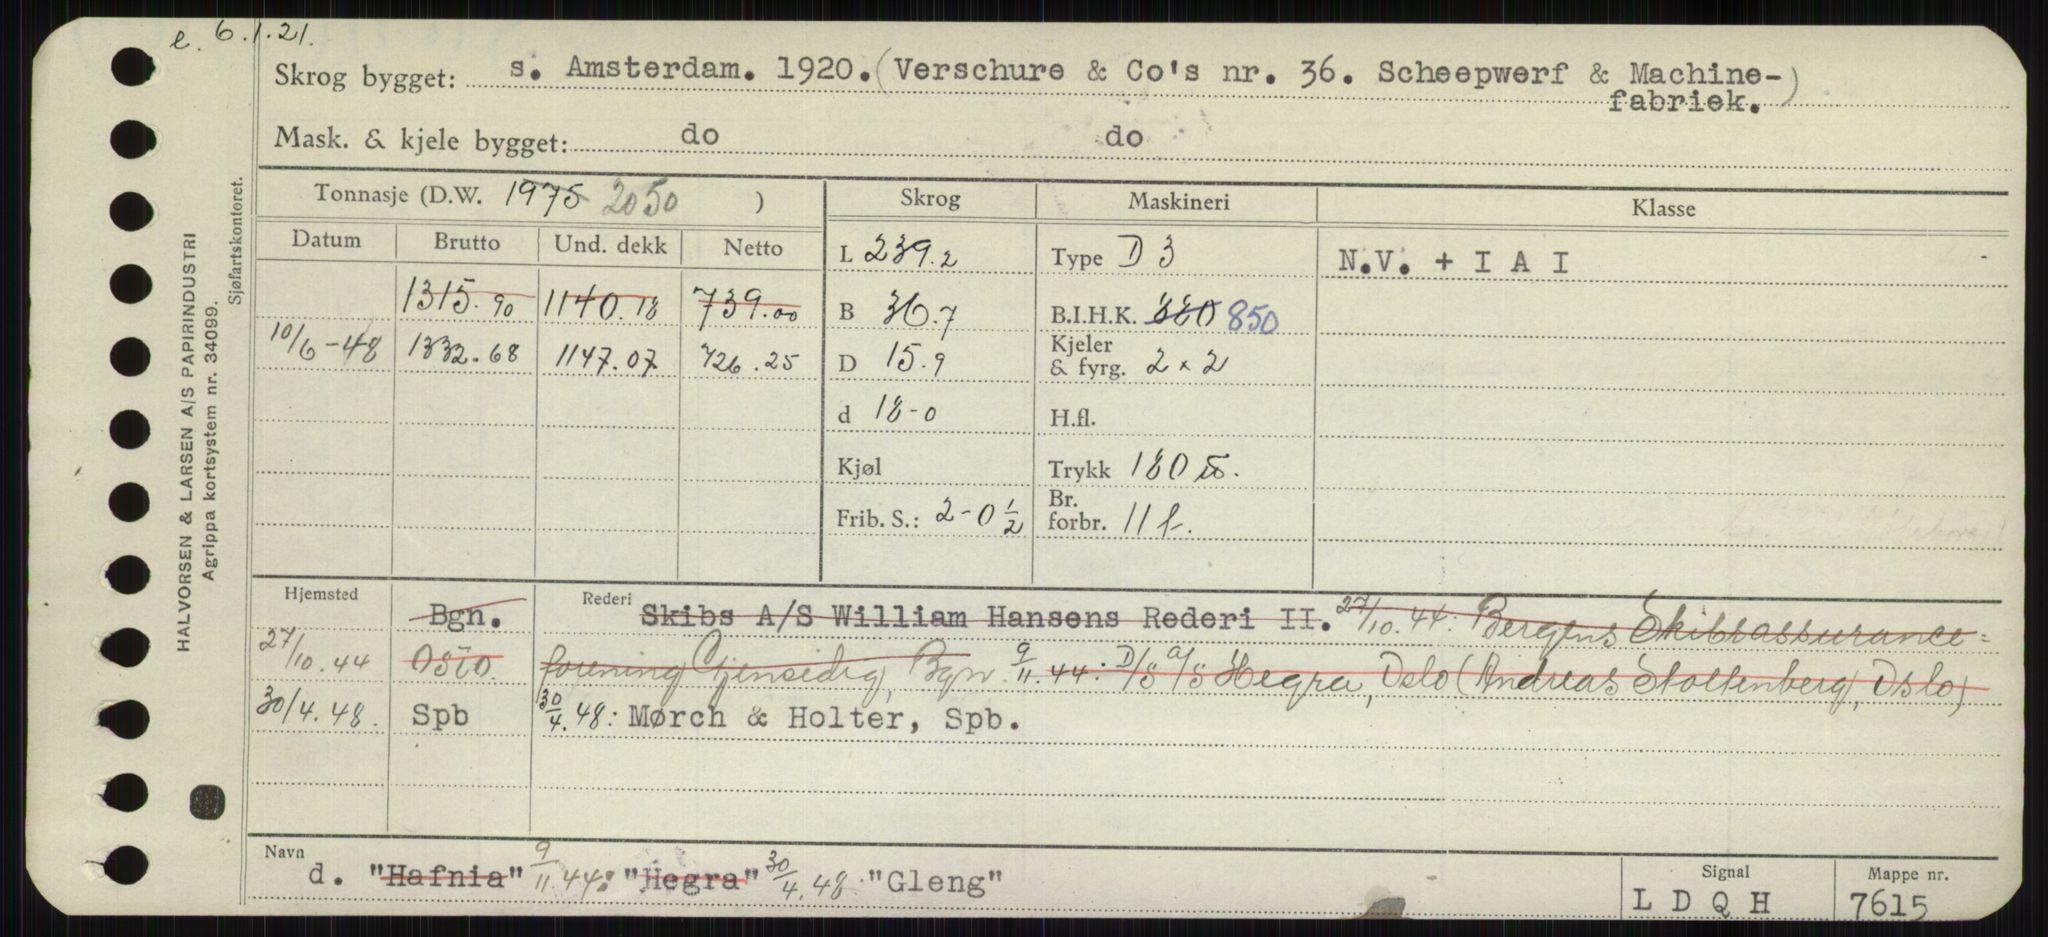 e. 6.1.21.
Skrog bygget: s. Amsterdam. 1920. (Verschure & Co's nr. 36. Scheepwerf & Machine-)
fabriek.
Mask. & kjele bygget: do do
Tonnasje (D.W. 1975 2050 ) Skrog Maskineri Klasse
Datum Brutto Und. dekk Netto
L 239.2 Type D 3 N.V. + I A I
1315.90 1140.18 739.00 B 36.7 B.I.H.K. 880 850
10/6-48 1332.68 1147.07 726.25 D 15.9 Kjeler & fyrg. 2 x 2
d 18-0 H.fl.
Kjøl Trykk 180 lb.
Frib. S.: 2-0 1/2 Br. forbr. 11 t.
Hjemsted Bgn. Rederi Skibs A/S William Hansens Rederi II. 27/10.44. Bergens Skibsassurance=
27/10.44 Oslo forening Gjensidig, Bgn. 9/11.44: D/S A/S Hegra, Oslo (Andreas Stoltenberg, Oslo)
30/4.48. Spb 30/4.48: Mørch & Holter, Spb.
Navn d. "Hafnia" 9/11.44: "Hegra" 30/4.48 "Gleng"
Signal L D Q H Mappe nr. 7615
HALVORSEN & LARSEN A/S PAPIRINDUSTRI
Agrippa kortsystem nr. 34099.
Sjøfartskontoret.